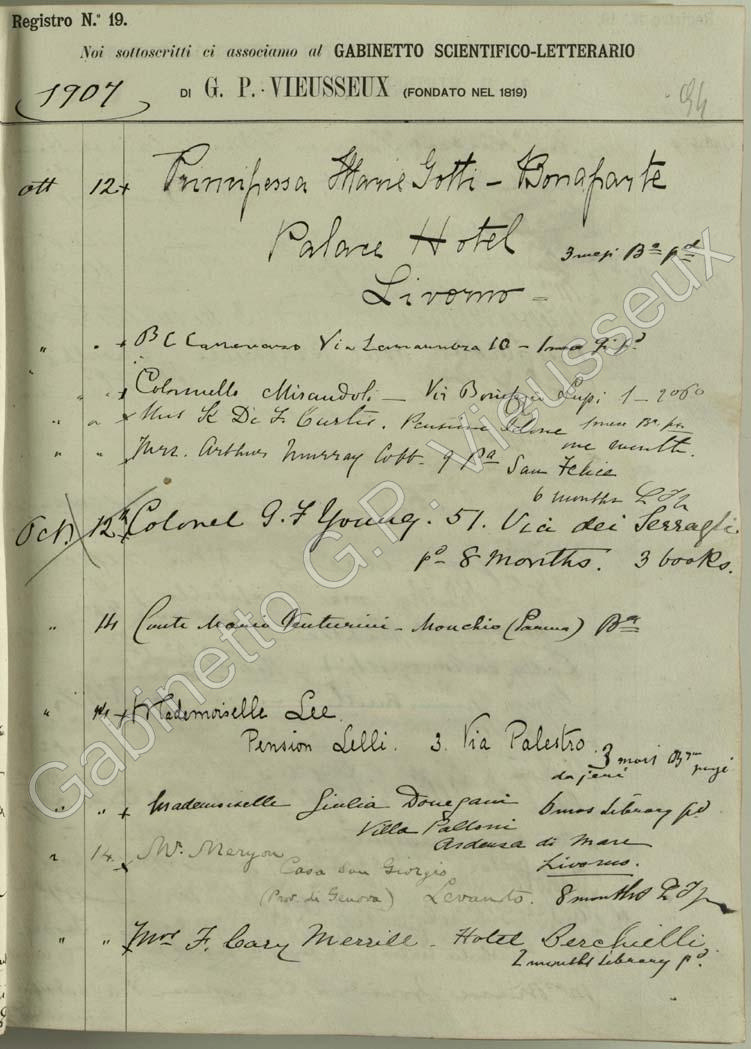 Registro N.° 19.
Noi sottoscritti ci associamo al GABINETTO SCIENTIFICO-LETTERARIO
1907 DI G. P. VIEUSSEUX (FONDATO NEL 1819) 94
ott 12 + Principessa Marie Gotti - Bonaparte
Palace Hotel 3 mesi Bª pd
Livorno
" " + Via 10 - 1 pº
" + Colonnello Mirandoli - Via Lupi 1 - 2060
" " Miss K De F Curtis. Pensione
one month.
" " Mrs. Arthur Murray Cobb. 9 Pa San Felice
6 months
Oct. 12 Colonel G. F Young. 51. Via dei Serragli.
pd 8 months. 3 books.
" 14 Conte Mario Venturini - Monchio (Parma) Bª
" 14 + Mademoiselle Lee.
Pension Lelli. 3. Via Palestro.
3 mesi
da jeri
" " + Mademoiselle Giulia Donegani 6 mos Library pd
Villa Palloni
Ardenza di Mare
" 14. Mr. Meryon Livorno.
Casa San Giorgio
(Prov. di Genova) Levanto. 8 months
" " Mrs F. Cary Merrill - Hotel Berchielli
2 months Library pd.
Gabinetto G.P. Vieusseux